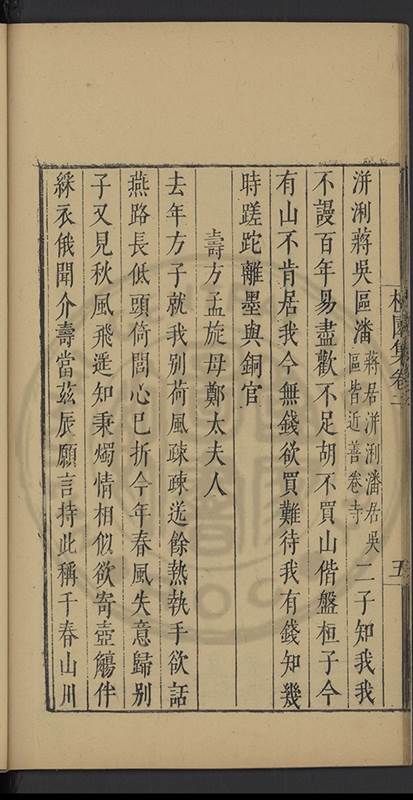 洴浰蔣吳區潘蔣居洴浰潘居吳
區皆近善卷寺二子知我我
不謾百年易盡歡不足胡不買山偕盤桓子今
有山不肯居我今無錢欲買難待我有錢知幾
時蹉跎離墨與銅官
壽方孟旋母鄭太夫人
去年方子就我别荷風疎疎送餘熱執手欲話
燕路長低頭倚閭心已折今年春風失意歸别
子又見秋風飛遥知秉燭情相似欲寄壺觴伴
綵衣俄聞介壽當兹辰願言持此稱千春山川
集卷二
五